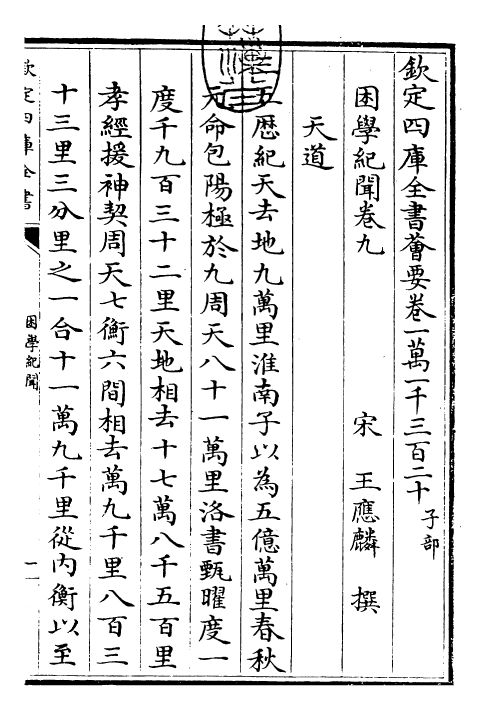 欽定四庫全書薈要卷一萬一千三百二十 子部
困學紀聞卷九 宋 王應麟 撰
天道
五歴紀天去地九萬里淮南子以為五億萬里春秋
元命包陽極於九周天八十一萬里洛書甄曜度一
度千九百三十二里天地相去十七萬八千五百里
孝經援神契周天七衡六間相去萬九千里八百三
十三里三分里之一合十一萬九千里從内衡以至
欽定四庫全書
困學紀聞
一